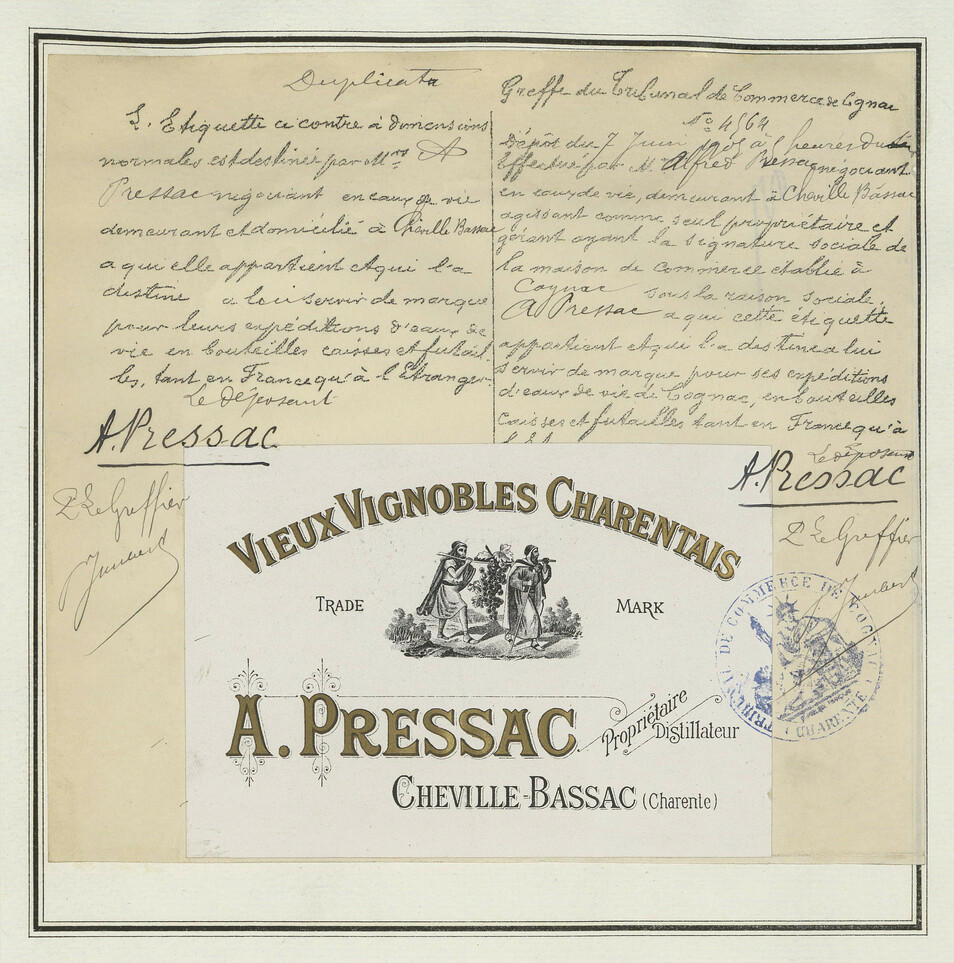 Duplicata
L'Etiquette ci contre à dimensions
normales est destinée par Mr A
Pressac negociant en eaux de vie
demeurant et domicilié à Cheville Bassac
a qui elle appartient et qui l'a
destine a lui servir de marque
pour leurs expéditions d'eaux de
vie en bouteilles caisses et futail-
les, tant en France qu'à l'Etranger
Le déposant
A. Pressac
Pr Le Greffier
Greffe du Tribunal de Commerce de Cognac
No 4564
Dépôt du 7 Juin à heures du
Effectué par Mr Alfred Pressac négociant
en eaux de vie, demeurant à Cheville Bassac
agissant comme seul propriétaire et
gérant ayant la signature sociale de
la maison de commerce établie à
Cognac sous la raison sociale,
A Pressac a qui cette étiquette
appartient et qui l'a destine a lui
servir de marque pour ses expéditions
d'eaux de vie de Cognac, en bouteilles
caisses et futailles tant en France qu'à
Le déposant
A. Pressac
Pr Le Greffier
VIEUX VIGNOBLES CHARENTAIS
TRADE MARK
A. PRESSAC
Propriétaire
Distillateur
CHEVILLE-BASSAC (Charente)
TRIBUNAL DE COMMERCE DE COGNAC
(CHARENTE)